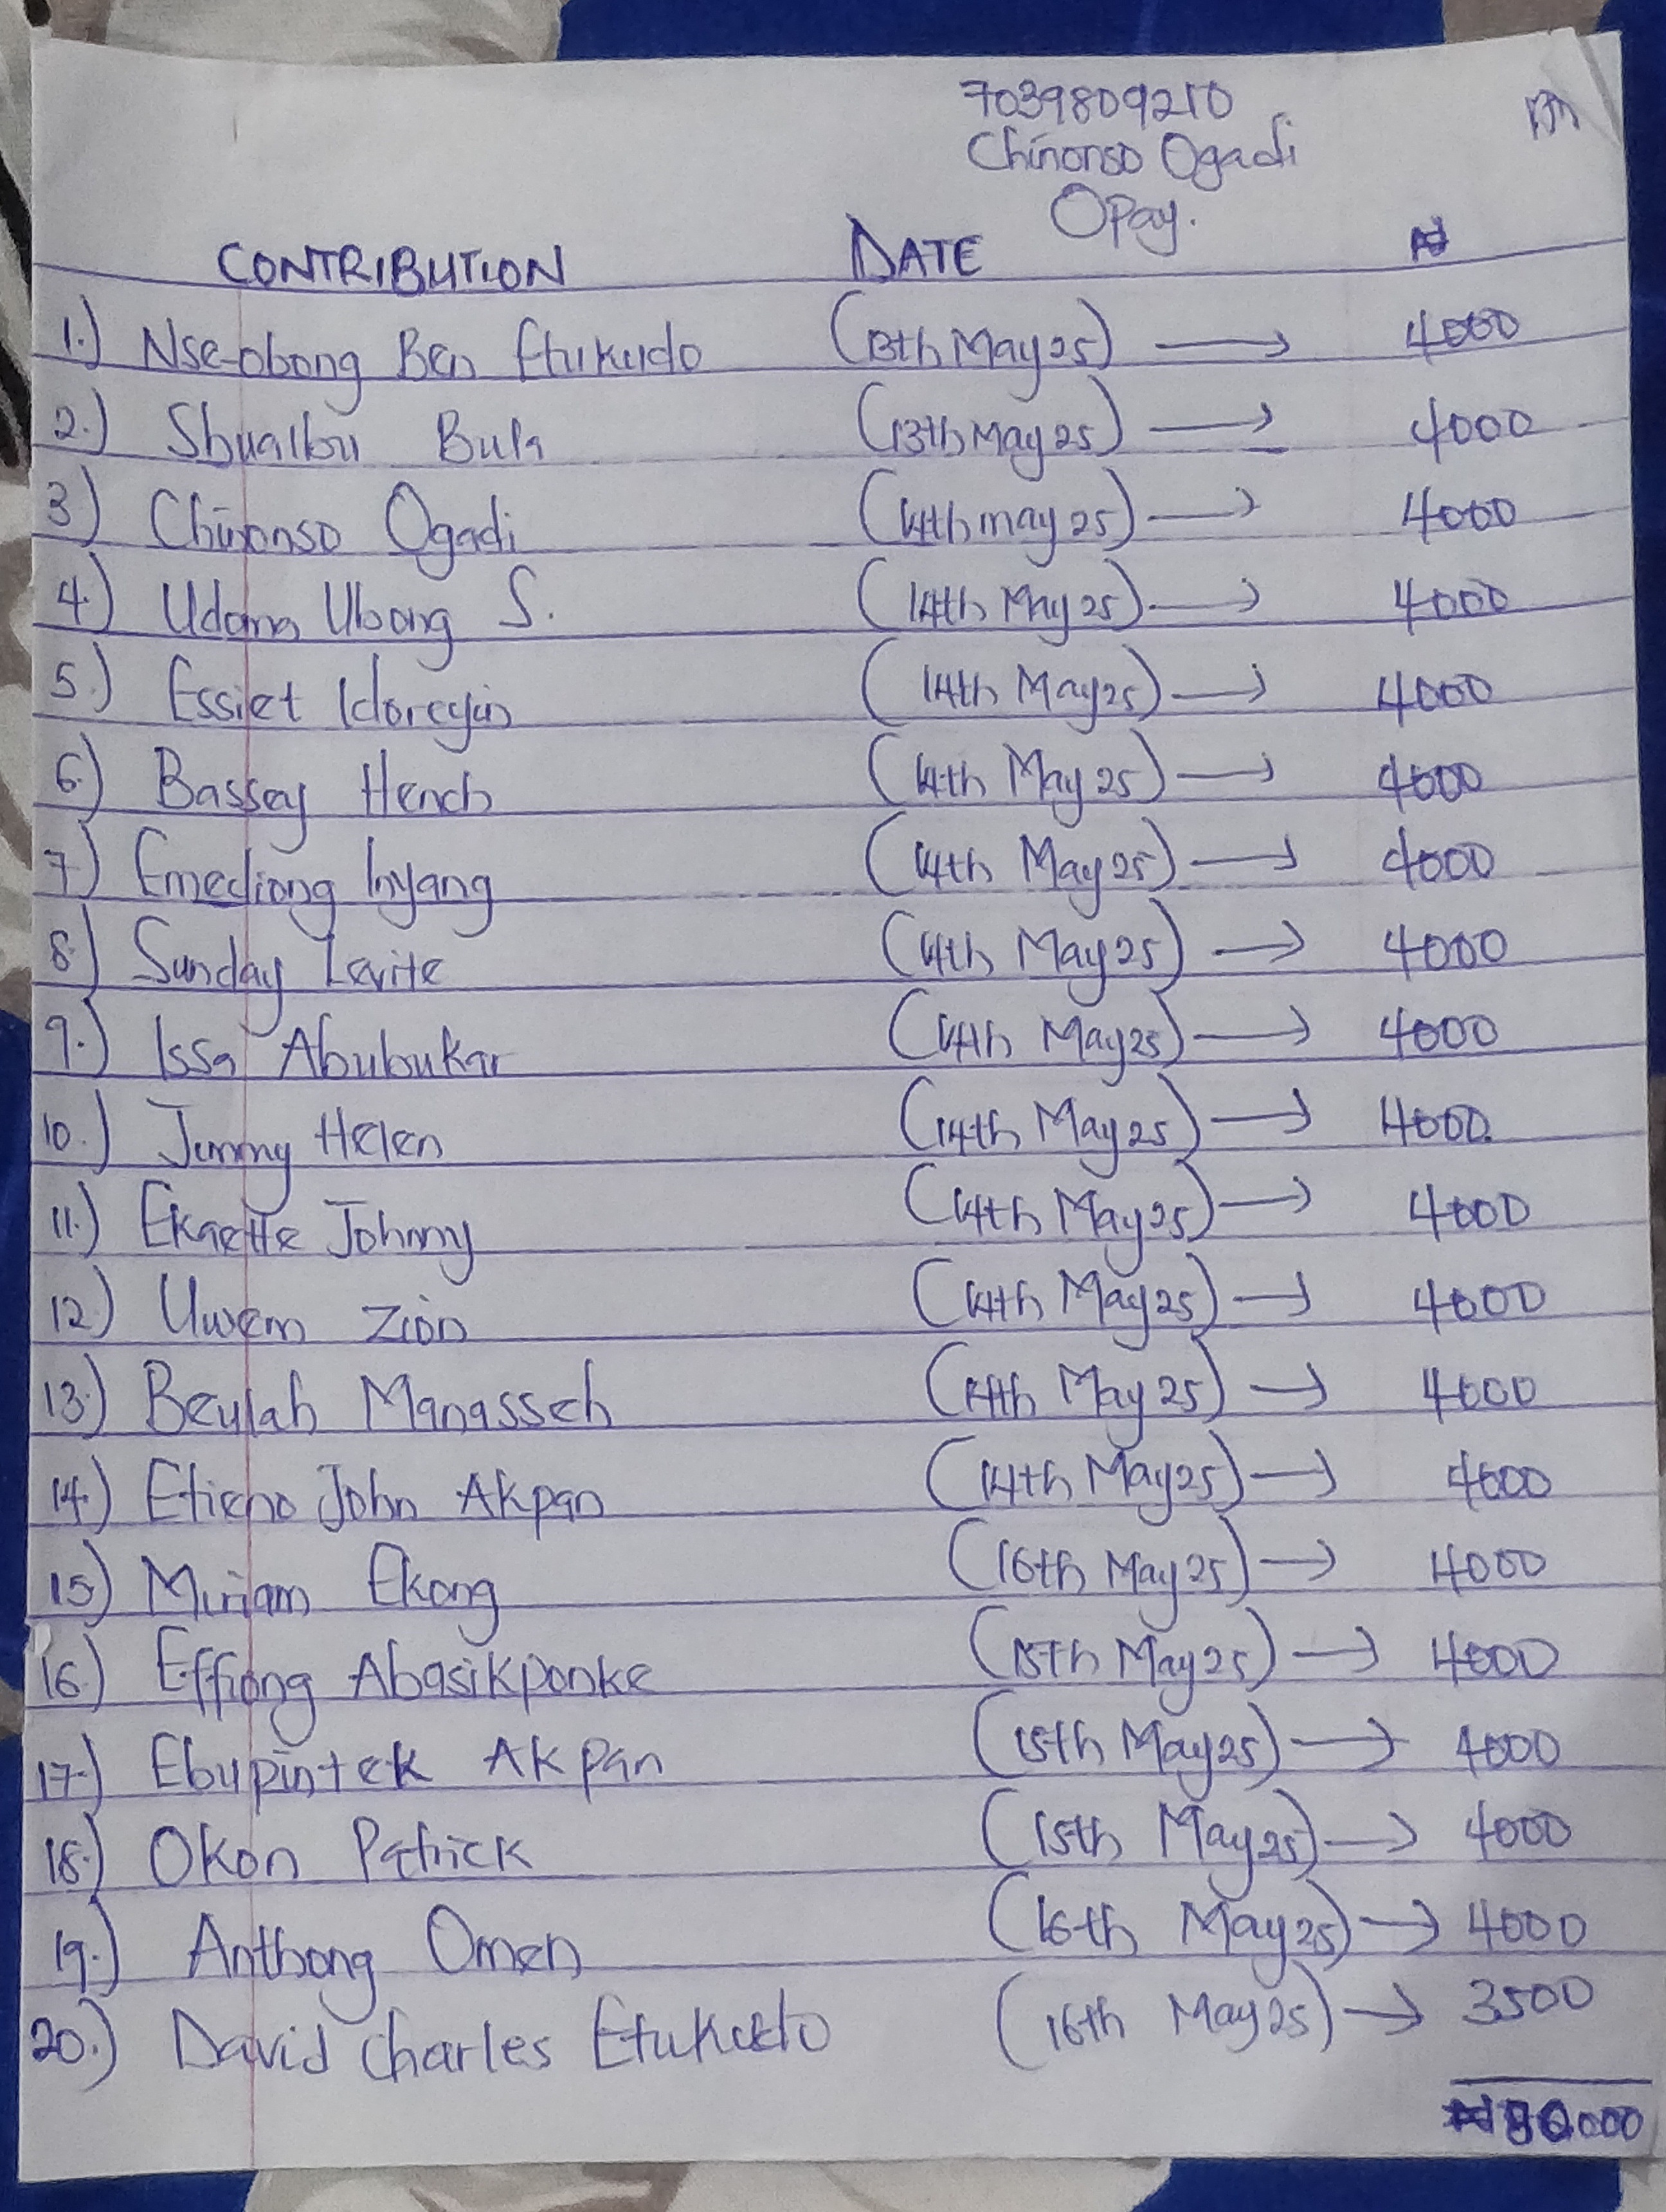 7039809210
Chinonso Ogadi
Opay.
CONTRIBUTION DATE ₦
1.) Nse-obong Ben Etukudo (13th May 25) → 4000
2.) Shuaibu Bula (13th May 25) → 4000
3) Chinonso Ogadi (14th may 25) → 4000
4) Udoma Ubong S. (14th May 25) → 4000
5.) Essiet Idoreyin (14th May 25) → 4000
6.) Bassey Hench (14th May 25) → 4000
7) Emediong Inyang (14th May 25) → 4000
8) Sunday Levite (14th May 25) → 4000
9.) Issa Abubukar (14th May 25) → 4000
10.) Jimmy Helen (14th May 25) → 4000
11.) Ekaette Johnny (14th May 25) → 4000
12) Uwem Zion (14th May 25) → 4000
13.) Beulah Manasseh (14th May 25) → 4000
14.) Etieno John Akpan (14th May 25) → 4000
15) Miriam Ekong (16th May 25) → 4000
16.) Effiong Abasikponke (15th May 25) → 4000
17.) Ebupintek Akpan (15th May 25) → 4000
18.) Okon Patrick (15th May 25) → 4000
19.) Anthony Omen (16th May 25) → 4000
20.) David Charles Etukudo (16th May 25) → 3500